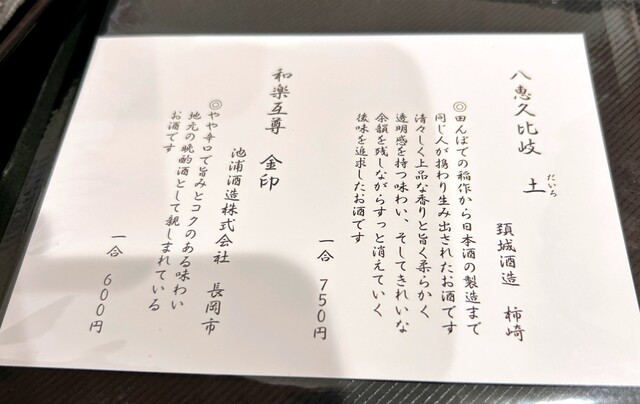 八恵久比岐　土
だいち
頚城酒造　柿崎
◎田んぼでの稲作から日本酒の製造まで
同じ人が携わり生み出されたお酒です
清々しく上品な香りと旨く柔らかく
透明感を持つ味わい、そしてきれいな
余韻を残しながらすっと消えていく
後味を追求したお酒です
一合　750円
和楽互尊　金印
池浦酒造株式会社　長岡市
◎やや辛口で旨みとコクのある味わい
地元の晩酌酒として親しまれている
お酒です
一合　600円